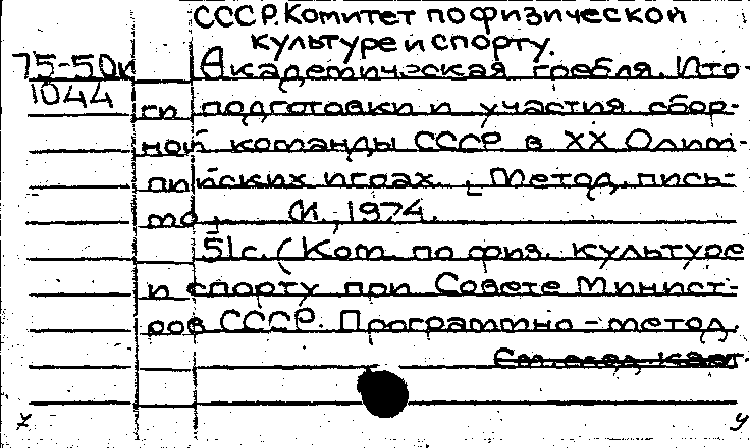 СССР. Комитет по физической
культуре и спорту.
75-50и Академическая гребля. Ито-
1044 ги подготовки и участия сбор-
ной команды СССР в XX Олим-
пийских играх. Метод. пись-
мо. М., 1974.
51с. (Ком. по физ. культуре
и спорту при Совете Минист-
ров СССР. Программно-метод.
См. след. карт.